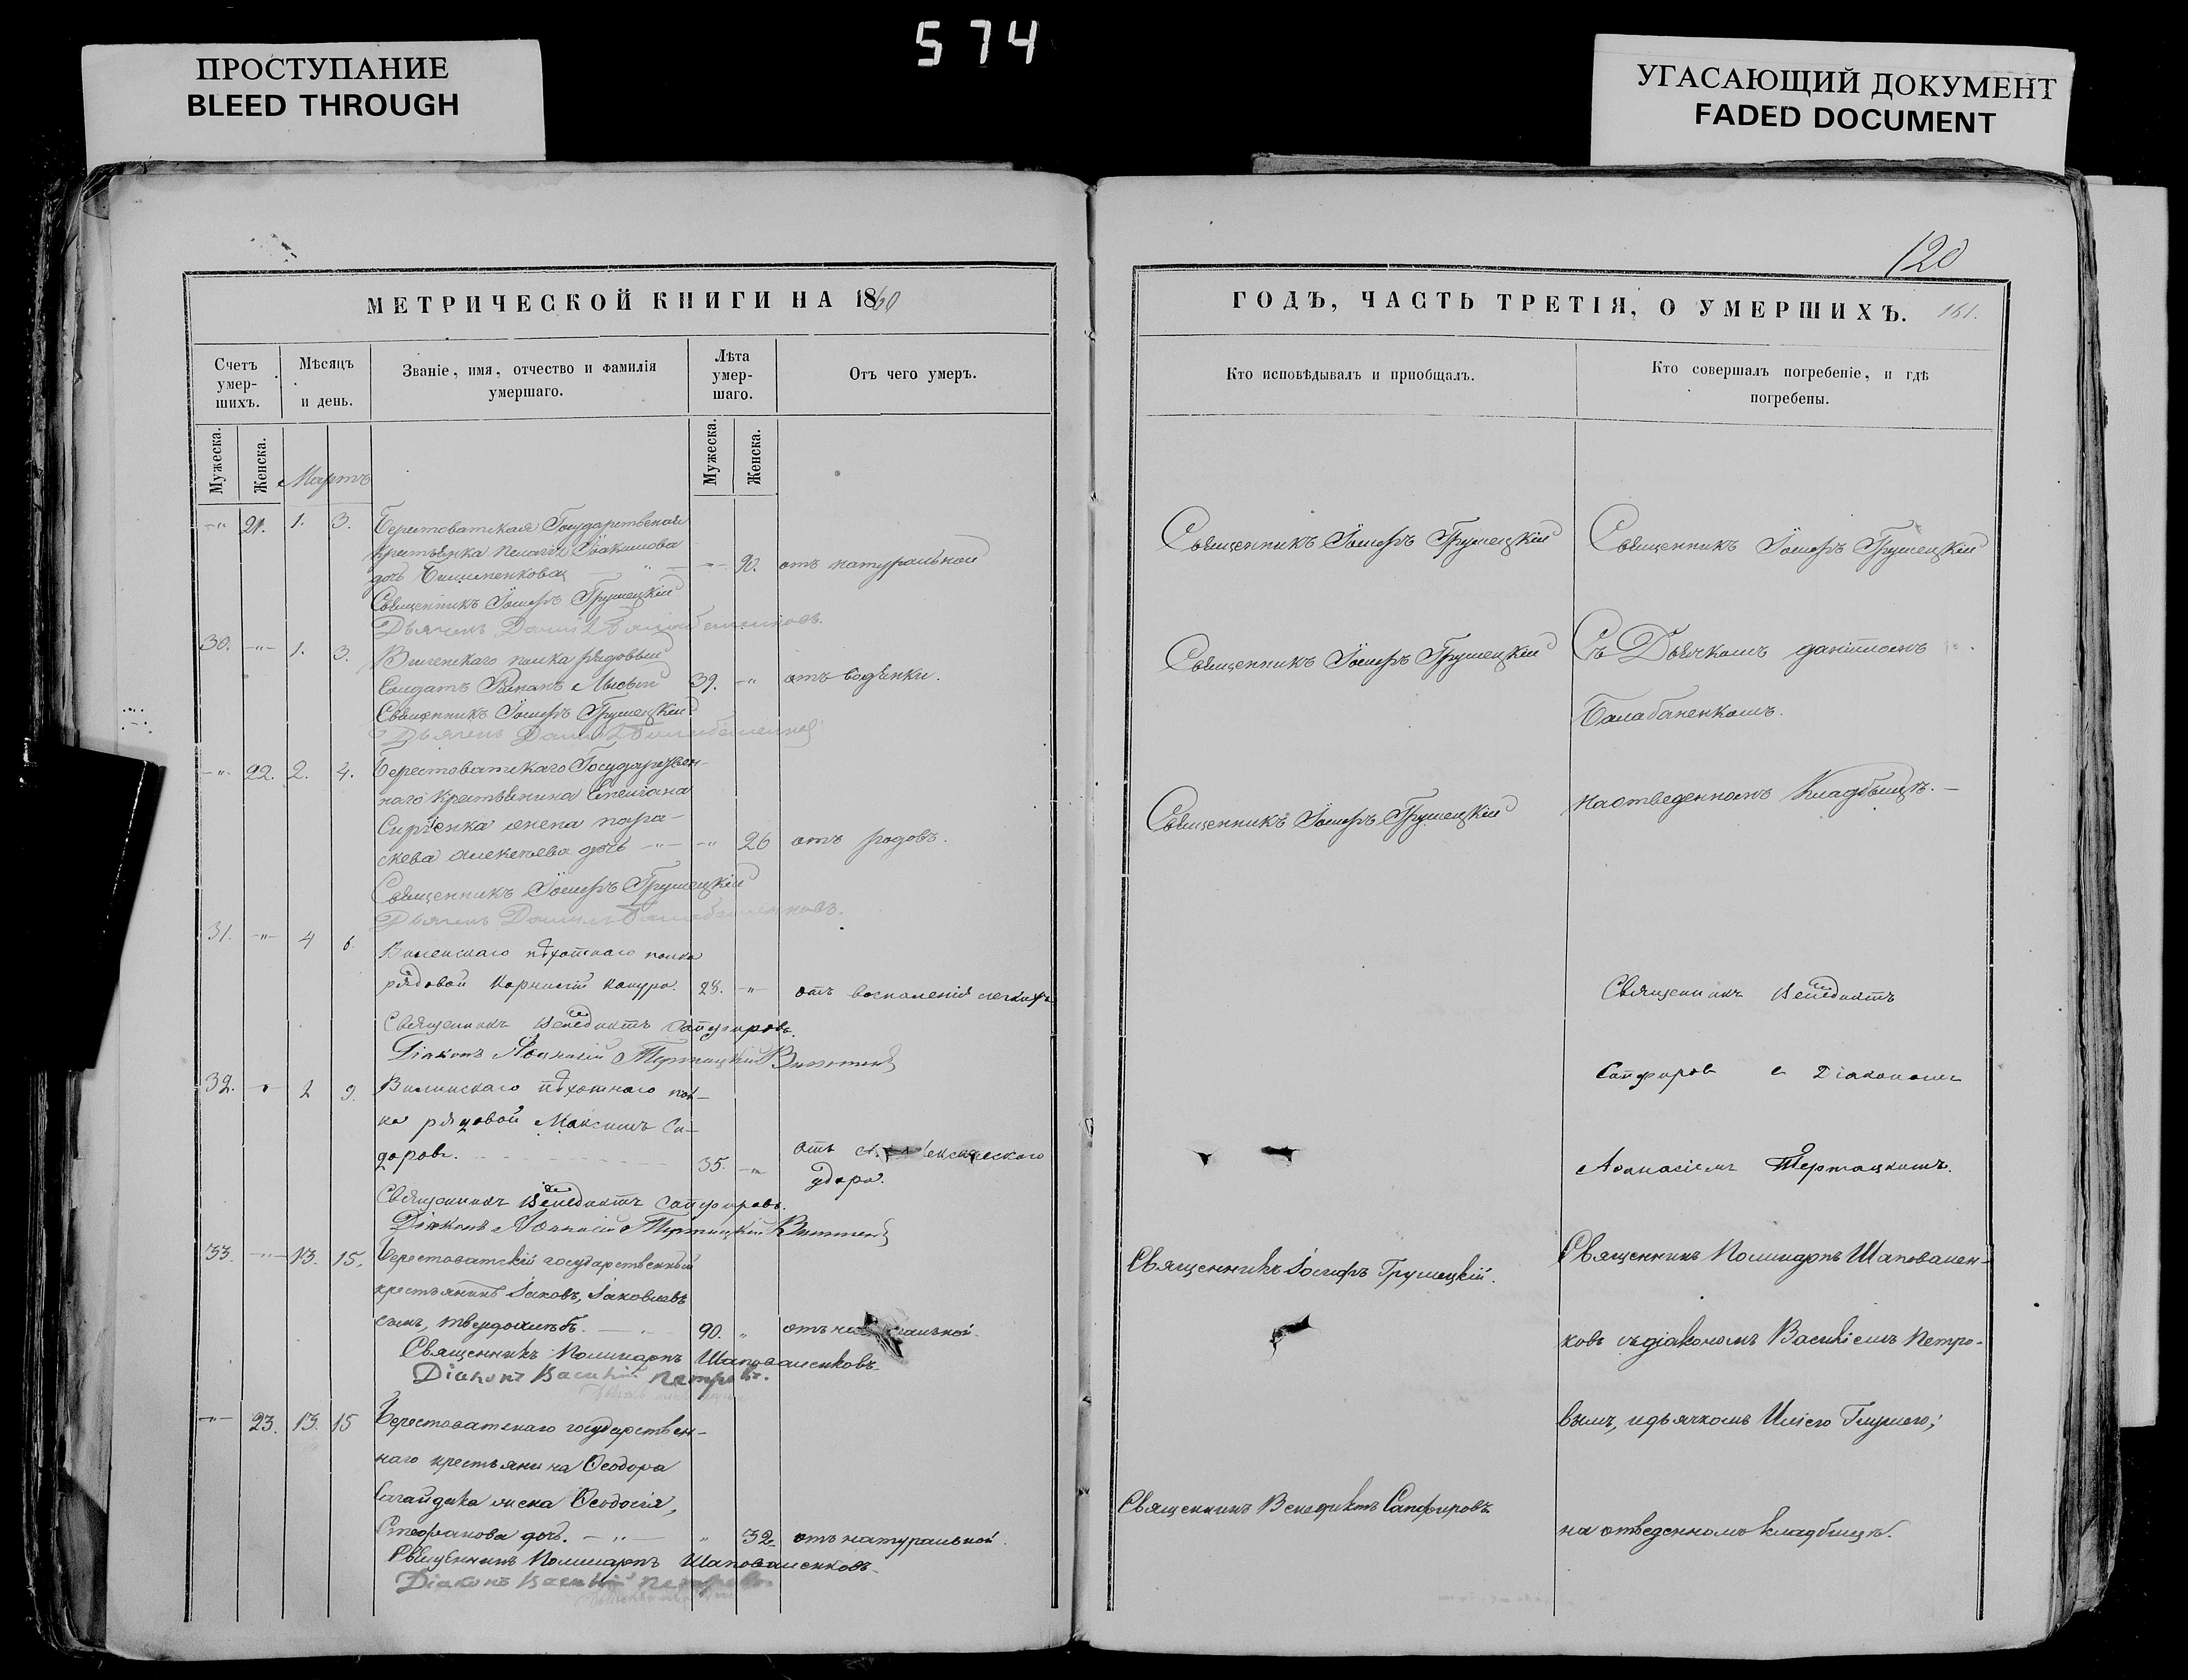 574
ПРОСТУПАНИЕ
BLEED THROUGH
УГАСАЮЩИЙ ДОКУМЕНТ
FADED DOCUMENT
МЕТРИЧЕСКОЙ КНИГИ НА 1860
Счетъ умер-шихъ.
Мѣсяцъ и день.
Званіе, имя, отчество и фамилія
умершаго.
Лѣта умер-шаго.
Отъ чего умеръ.
Мужеска.
Женска.
Мартъ
Мужеска.
Женска.
-"- 21. 1. 3. Берестоватская Государственная
крестьянка Пелагія Іоакимова
дочь -"- 90. отъ натуральной
Священникъ Іосифъ Грушецкій
Дьячекъ Даніилъ Балабаненковъ.
30. -"- 1. 3. Виленскаго полка рядовый
Солдатъ Романъ 39. -"- отъ водянки.
Священникъ Іосифъ Грушецкій
Дьячекъ Даніилъ
-"- 22. 2. 4. Берестоватскаго Государствен-
наго крестьянина
Сиріенка жена Пара-
скева Алексѣева дочь -"- -"- 26 отъ родовъ.
Священникъ Іосифъ Грушецкій
Дьячекъ Даніилъ Балабаненковъ.
31. -"- 4 6. Виленскаго пѣхотнаго полка
рядовой Корнилій 28. -"- отъ воспаленія легкихъ
Священникъ Венедиктъ Сапфировъ.
Діаконъ Аѳанасій
32. 9. Виленскаго пѣхотнаго пол-
ка рядовой Максимъ Си-
доровъ. 35. -"- отъ
удара.
Священникъ Венедиктъ Сапфировъ.
Діаконъ Аѳанасій
33. -"- 13. 15. Берестоватскій государственный
крестьянинъ Іаковъ, Іаковлевъ
сынъ, Твердохлѣбъ. 90. " отъ
Священникъ Поликарпъ Шаповаленковъ.
Діаконъ Василій Петровъ.
-"- 23. 13. 15 Берестоватскаго государствен-
наго крестьянина Ѳеодора
Сагайдака жена Ѳеодосія,
Стефанова дочь. -"- " 32. отъ натуральной.
Священникъ Поликарпъ Шаповаленковъ.
Діаконъ Василій Петровъ
120
ГОДЪ, ЧАСТЬ ТРЕТІЯ, О УМЕРШИХЪ. 161.
Кто исповѣдывалъ и пріобщалъ.
Кто совершалъ погребеніе, и гдѣ
погребены.
Священникъ Іосифъ Грушецкій
Священникъ Іосифъ Грушецкій
Священникъ Іосифъ Грушецкій
Съ Дьячкомъ Даніиломъ
Балабаненкомъ.
Священникъ Іосифъ Грушецкій
на отведенномъ кладбищѣ.
Священникъ Венедиктъ
Сапфировъ съ Діакономъ
Аѳанасіемъ
Священникъ Іосифъ Грушецкій.
Священникъ Поликарпъ Шаповален-
ковъ съ діакономъ Василіемъ Петро-
вымъ, и дьячкомъ Иліею
Священникъ Венедиктъ Сапфировъ
на отведенномъ кладбищѣ.